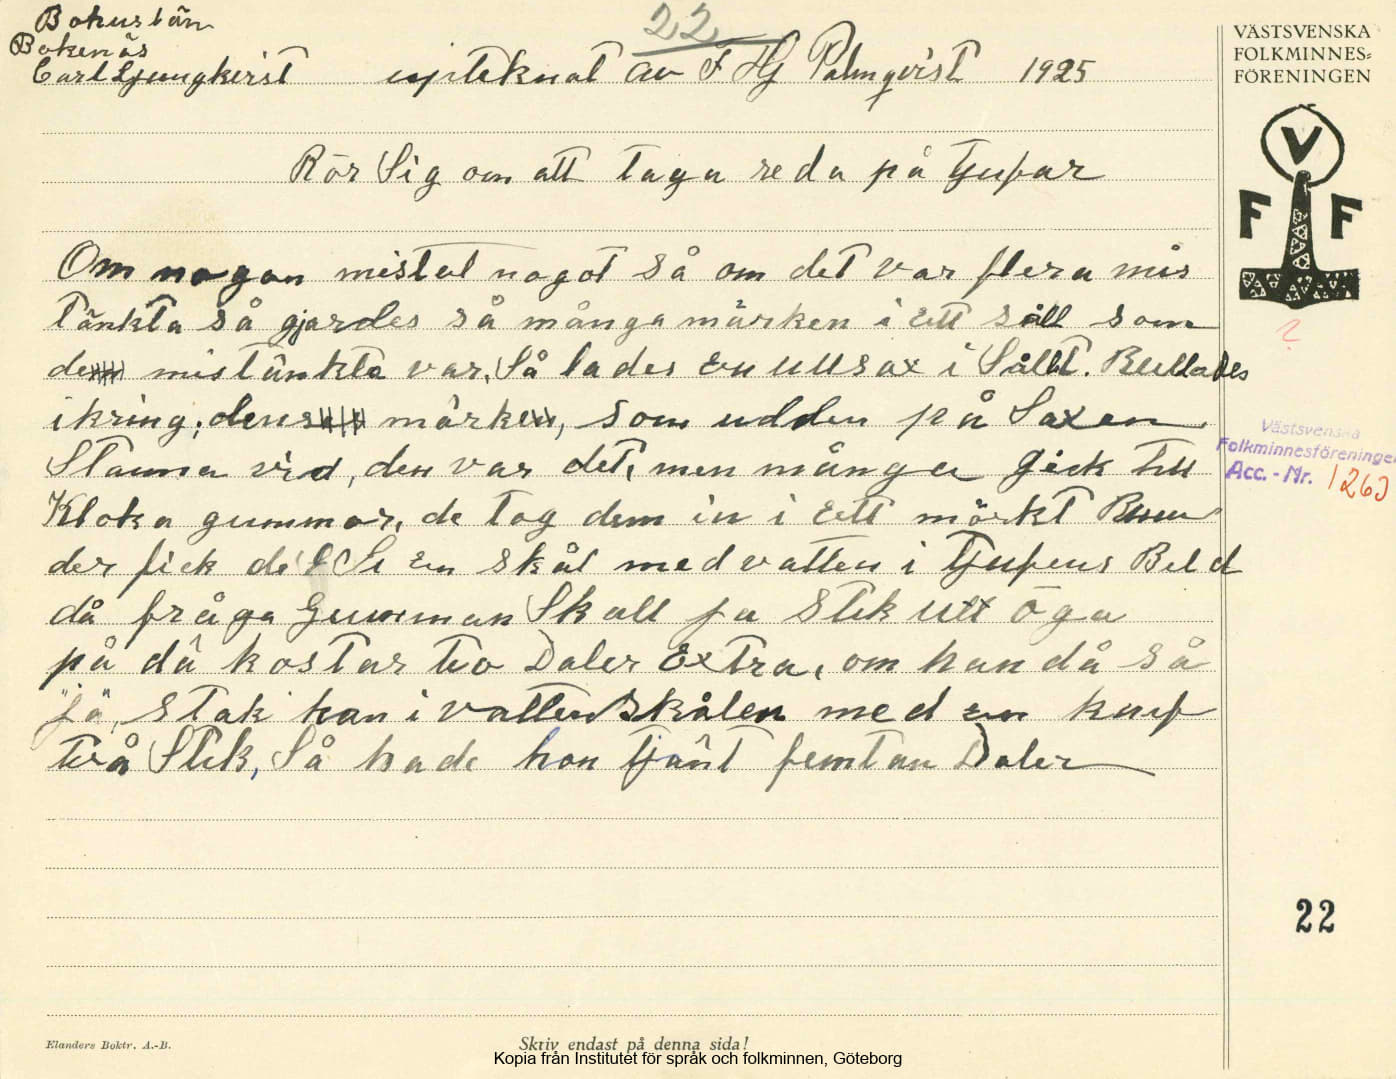 22
Bohuslän
Bokenäs
Carl Ljungkvist upteknat av F Hj Palmqvist 1925
Rör Sig om att taga reda på tjufvar
Om nogon mistat nogot så om det var flera mis
tänkta så gjordes så många märken i ett såll som
de mistänkta var, Så lades en ullsax i Sållt. Rullades
ikring, dens märke, som udden på Saxen
Stanna vid, den var det, men många gick till
Kloka gummor, de tog dem in i ett mörkt Rum
der fick de Se en skål med vatten i tjufvens Beld
då fråga Gumman Skall ja stik utt öga
på då kostar tvo Daler Extra, om han då så
"ja", stak han i vattenskålen med en knif
två Stik, Så hade hon tjänt femtan Daler
VÄSTSVENSKA
FOLKMINNES-
FÖRENINGEN
V
F F
?
Västsvenska
Folkminnesföreningen
Acc. - Nr. 1260
22
Elanders Boktr. A.-B.
Skriv endast på denna sida!
Kopia från Institutet för språk och folkminnen, Göteborg